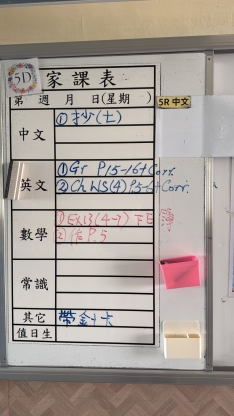 5D
家課表
第 週 月 日(星期 )
5R 中文
中文
①抄(七)
英文
①Gr P15-16+Corr.
②Ch WS(4) P.5-6+Corr.
數學
①Ex13(4-7) 下B簿
②作P.5
常識
其它
帶劍卡
值日生